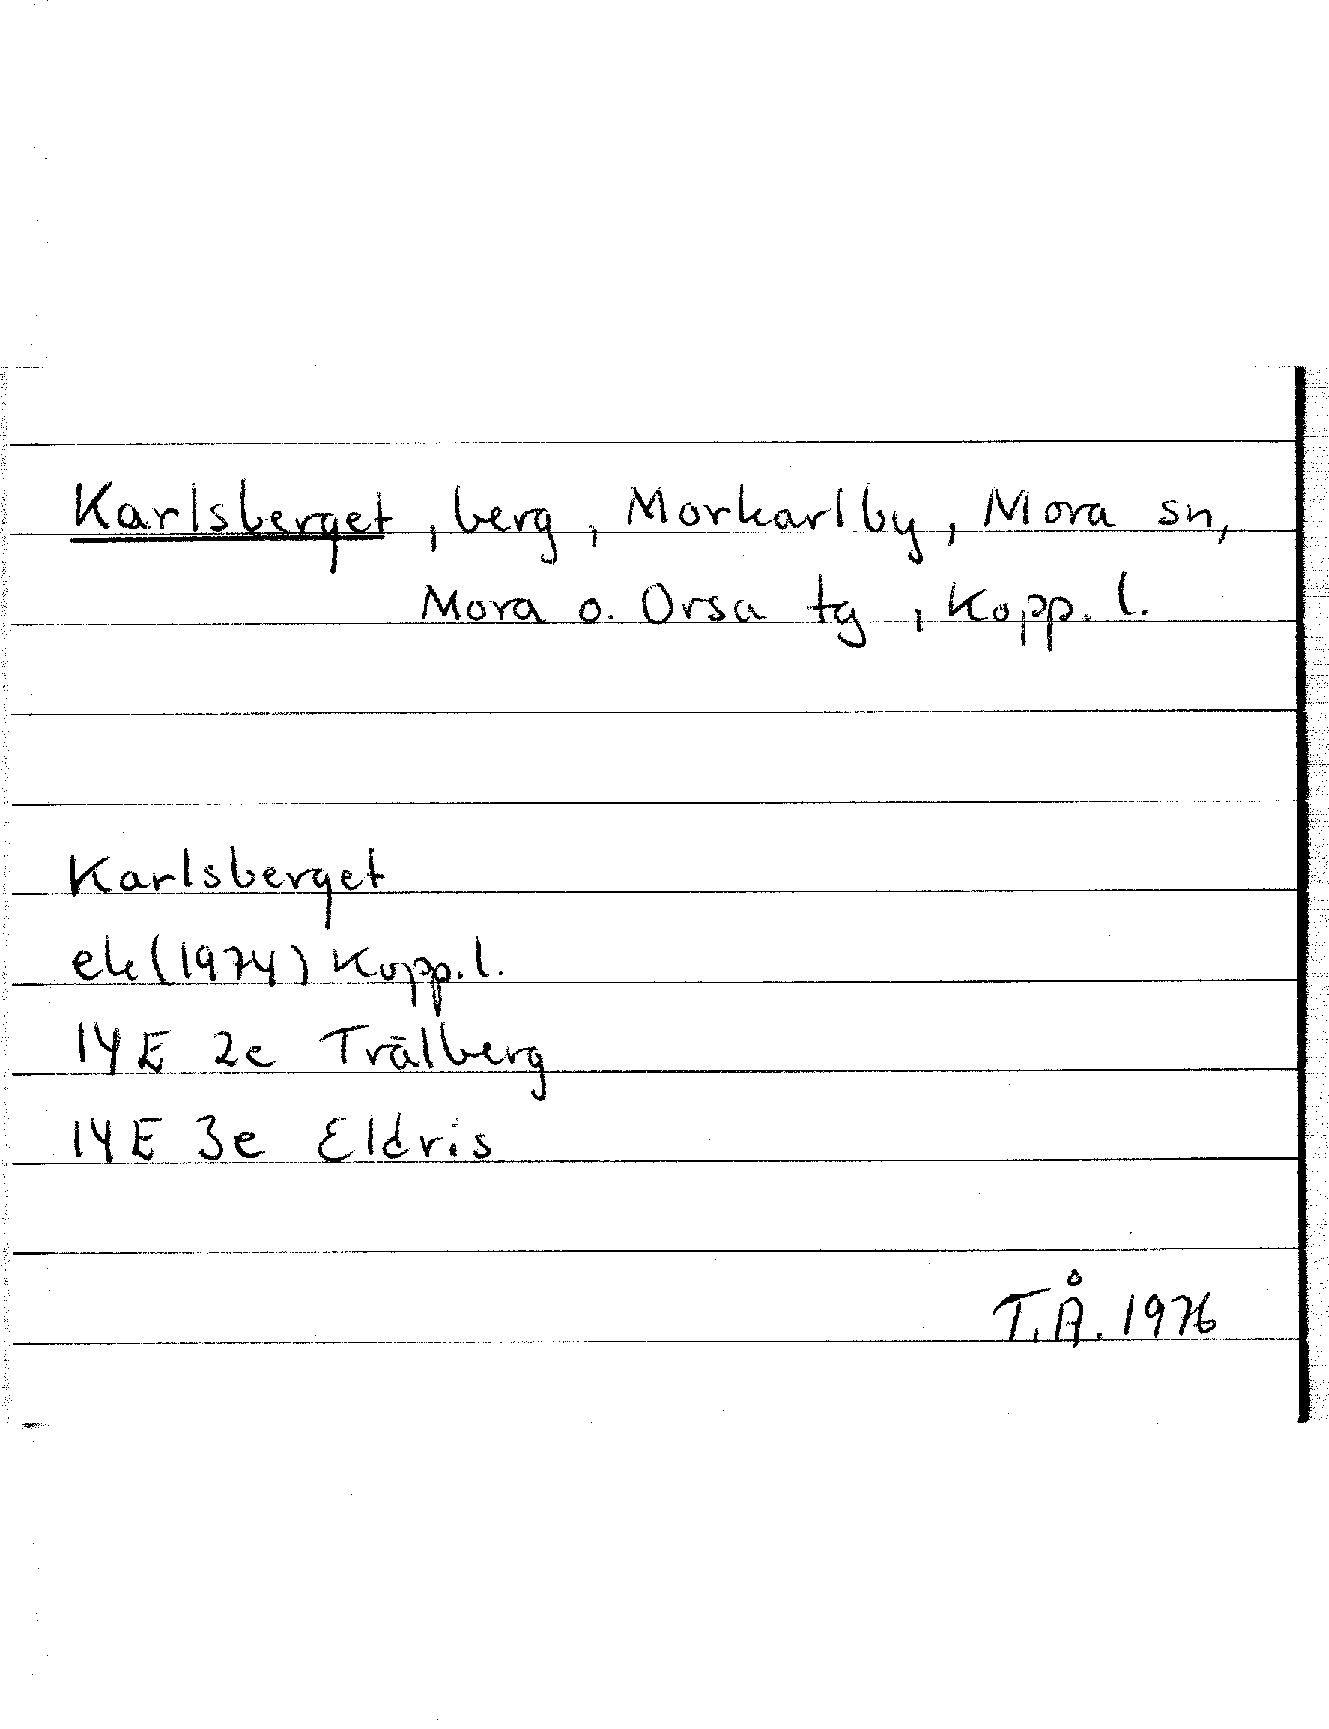 Karlsberget, berg, Morkarlby, Mora sn,
Mora o. Orsa tg, Kopp. l.
Karlsberget
ek (1974) Kopp. l.
14 E 2e Trälberg
14 E 3e Eldris
T.Å. 1976